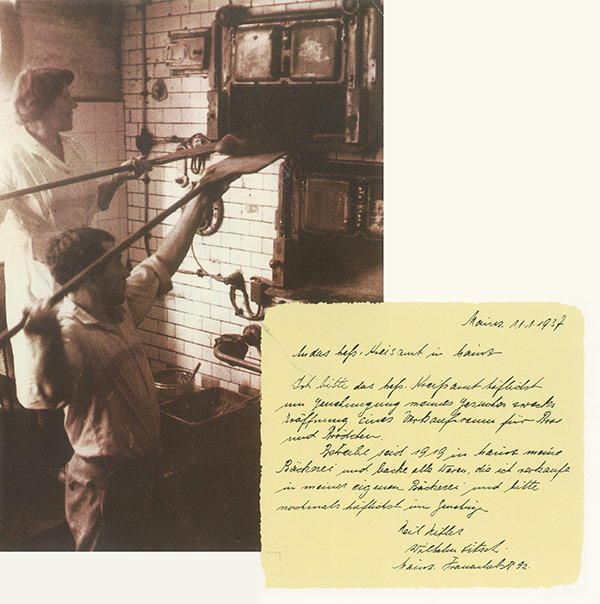 Mainz. 11.1.1937
An das hess. Kreisamt in Mainz
Ich bitte das hess. Kreisamt höflichst
um Genehmigung meines Gesuches zwecks
Eröffnung eines Verkaufsraum für Brot
und Brödchen.
Betreibe seid 1919 in Mainz meine
Bäckerei und backe alle Waren, die ich verkaufe
in meiner eigenen Bäckerei und bitte
nochmals höflichst um Genehmig
Heil Hitler
Wilhelm
Mainz. 92.